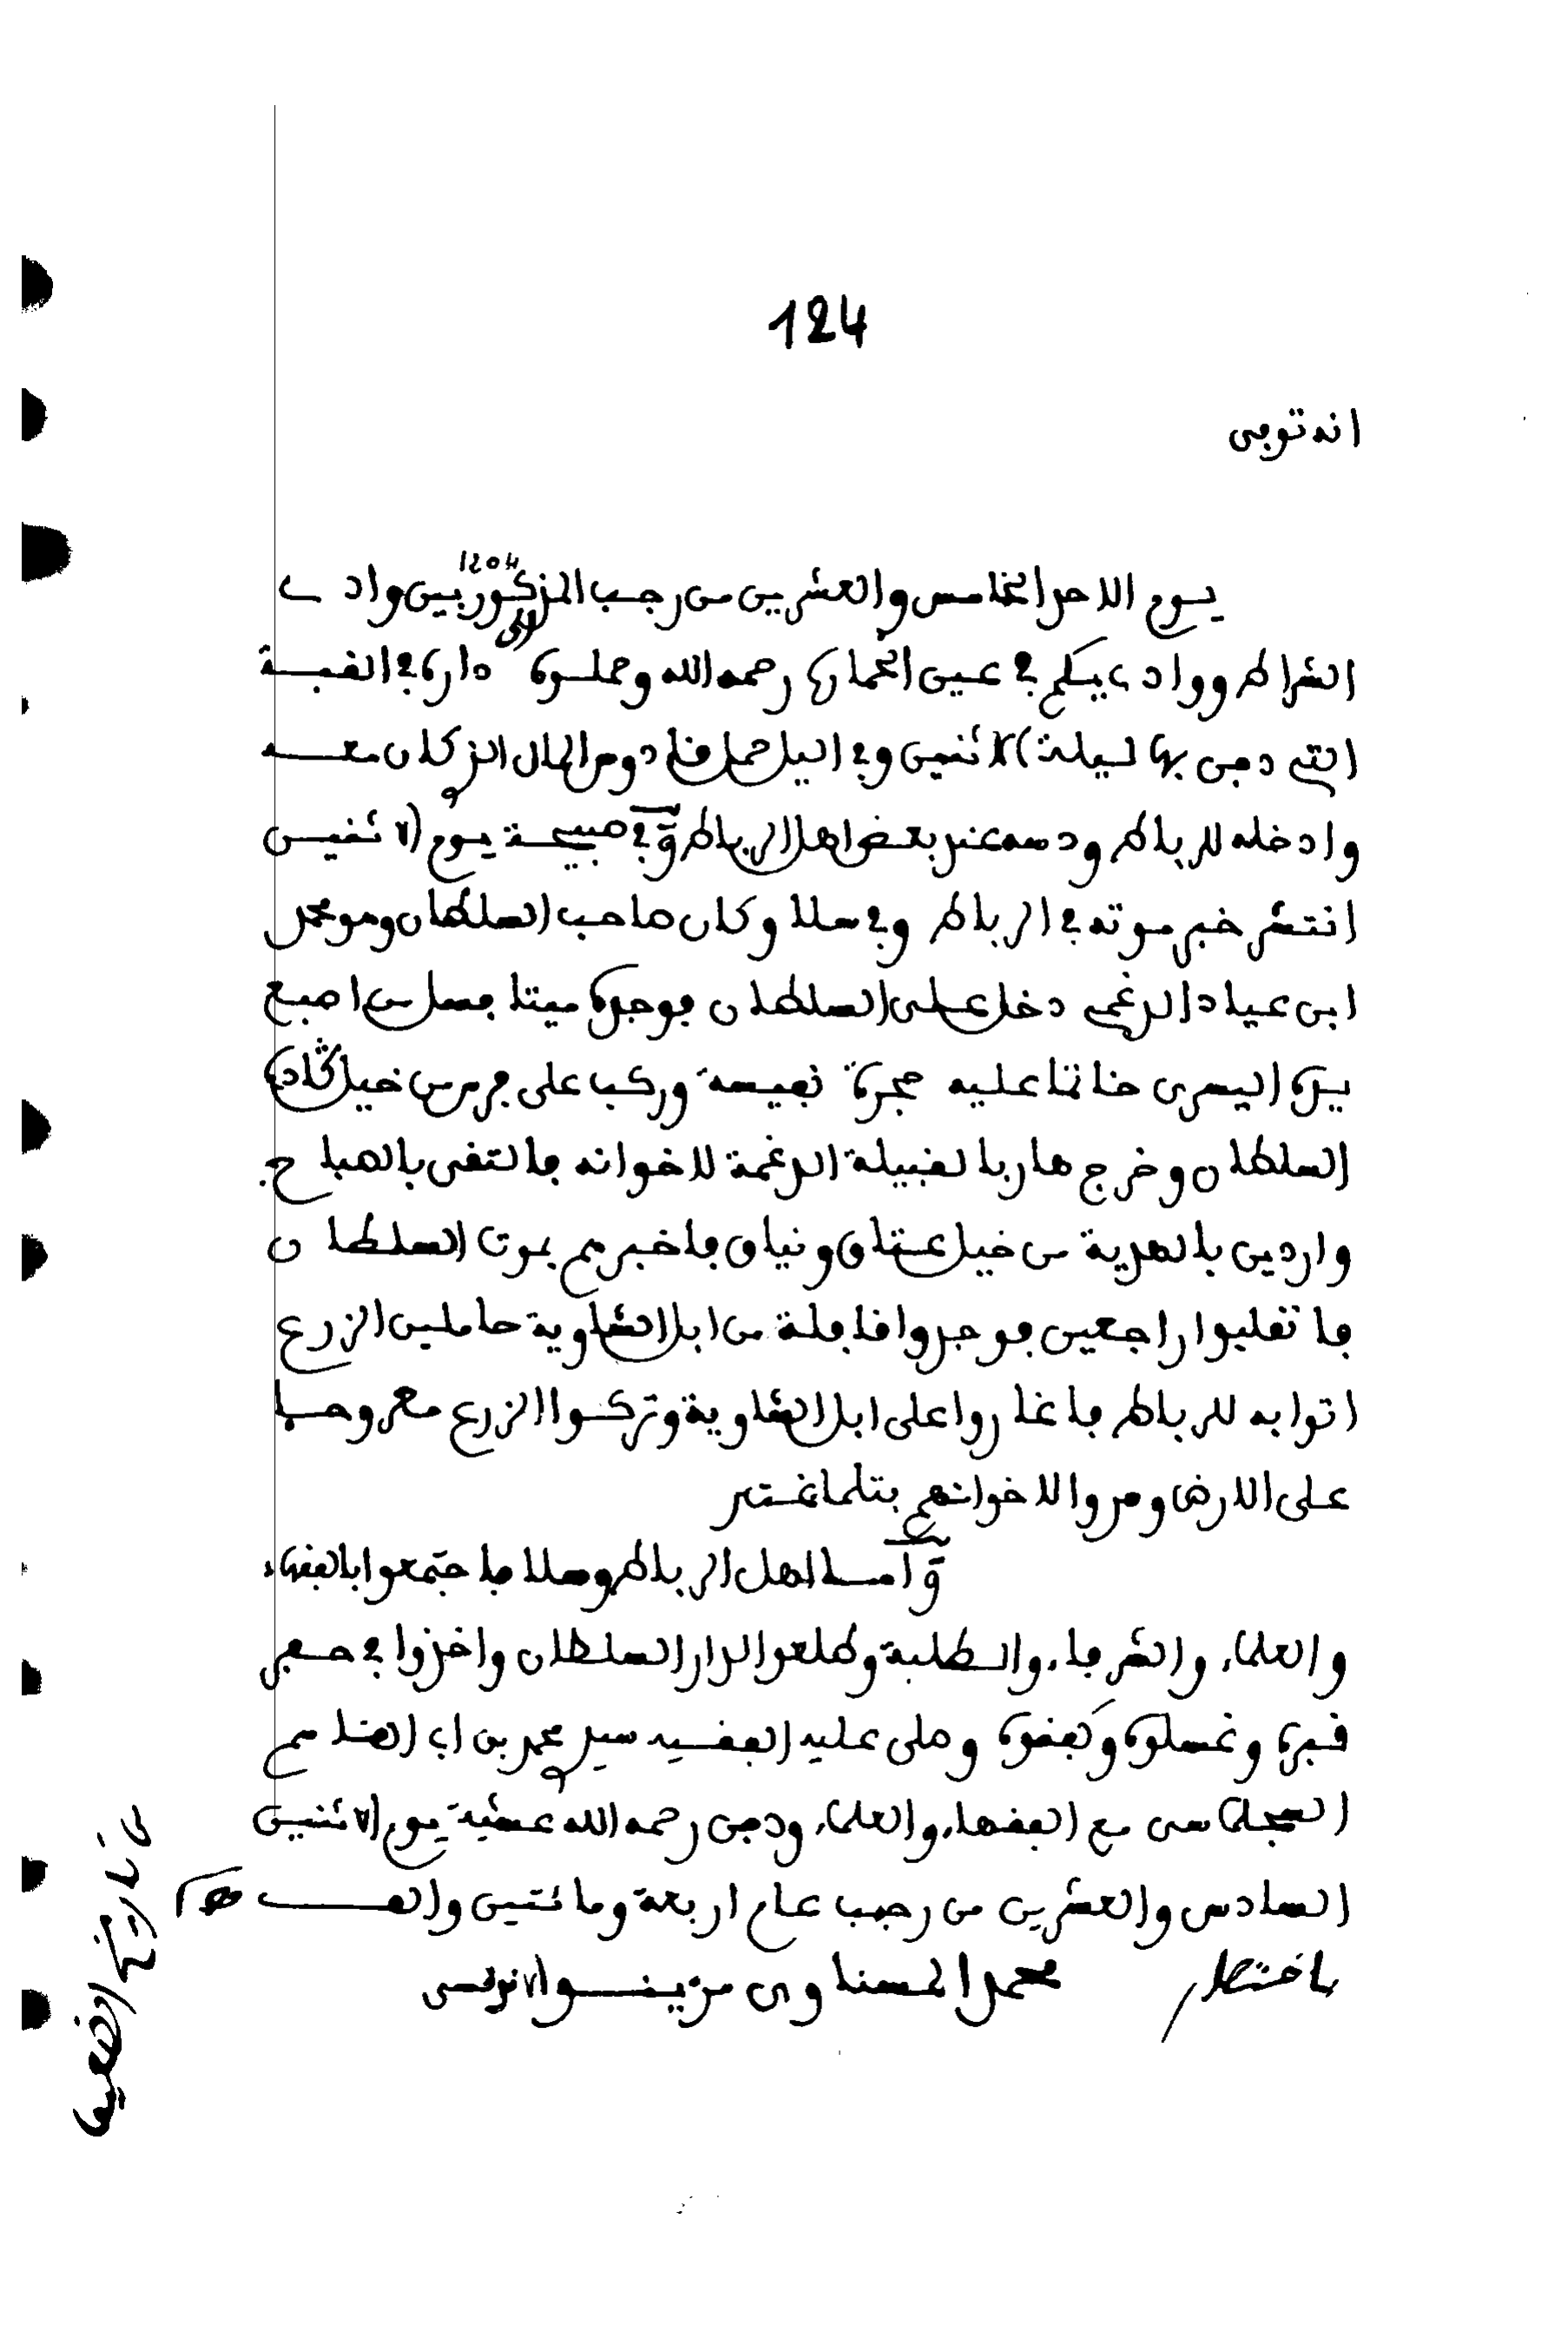 124
انه توفى
يوم الاحد الخامس والعشرين من رجب المذكور 1204 بين وادي
الشراط ووادي يكم في عين الخمارة رحمه الله وحملوه الى داره في القبة
التي دفن بها ليلة الاثنين وفي اليل حمل قادوم المال الذي كان معه
وادخله للرباط ودسه عند بعض اهل الرباط وفي صبيحة يوم الاثنين
انتشر خبر موته في الرباط وفي سلا وكان صاحب السلطان وهو محمد
ابن عياد الدغمي دخل على السلطان فوجده ميتا فسل من اصبع
يده اليسرى خاتما عليه حجرة نفيسة وركب على فرس من خيل
السلطان وخرج هاربا لقبيلة الدغمة لاخوانه فالتقى بالصباح
واردين بالهدية من خيل عتاق ونياق فاخبرهم بموت السلطان
فانقلبوا راجعين فوجدوا قافلة من ابل الشاوية حاملين الزرع
اتوا به للرباط فاغاروا على ابل الشاوية وتركوا الزرع مطروحا
على الارض ومروا لاخوانهم بتلماغت
وأما اهل الرباط وسلا فاجتمعوا بالفقهاء
والعلماء والشرفاء والطلبة وطلعوا لدار السلطان واخذوا في حفر
قبره وغسلوه وكفنوه وصلى عليه الفقيه سيدي محمد بن ابي القاسم
السجلماسي مع الفقهاء والعلماء ودفن رحمه الله عشية يوم الاثنين
السادس والعشرين من رجب عام اربعة ومائتين والف اهـ
باختصار
محمد الحسناوي مرينو الاندلسي
من تاريخ الضعيف